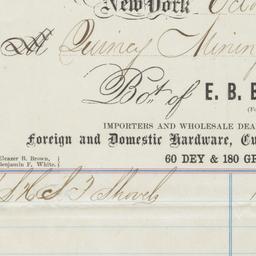 New York Octo
M Quincy Minin
Bot. of E. B. B
IMPORTERS AND WHOLESALE DEA
Foreign and Domestic Hardware, Cu
Eleazer B. Brown,
Benjamin F. White.
60 DEY & 180 GR
Shovels